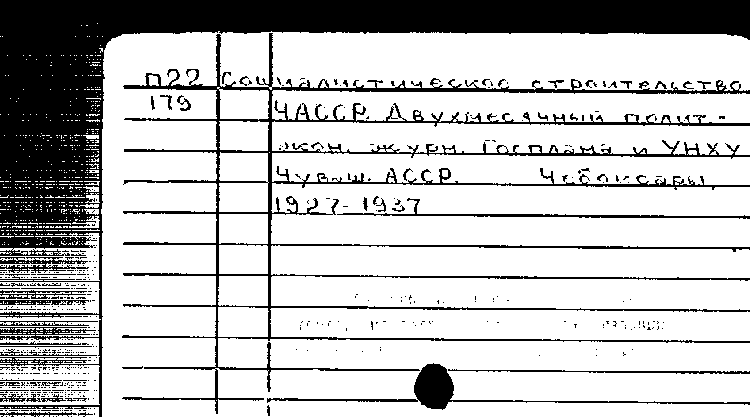 П22 Социалистическое строительство
179 ЧАССР. Двухмесячный полит.-
экон. журн. Госплана и УНХУ
Чуваш. АССР. Чебоксары,
1927-1937